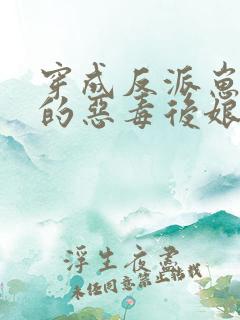 穿成反派崽
的惡毒後娘
浮生夜盡
未经同意禁止转载